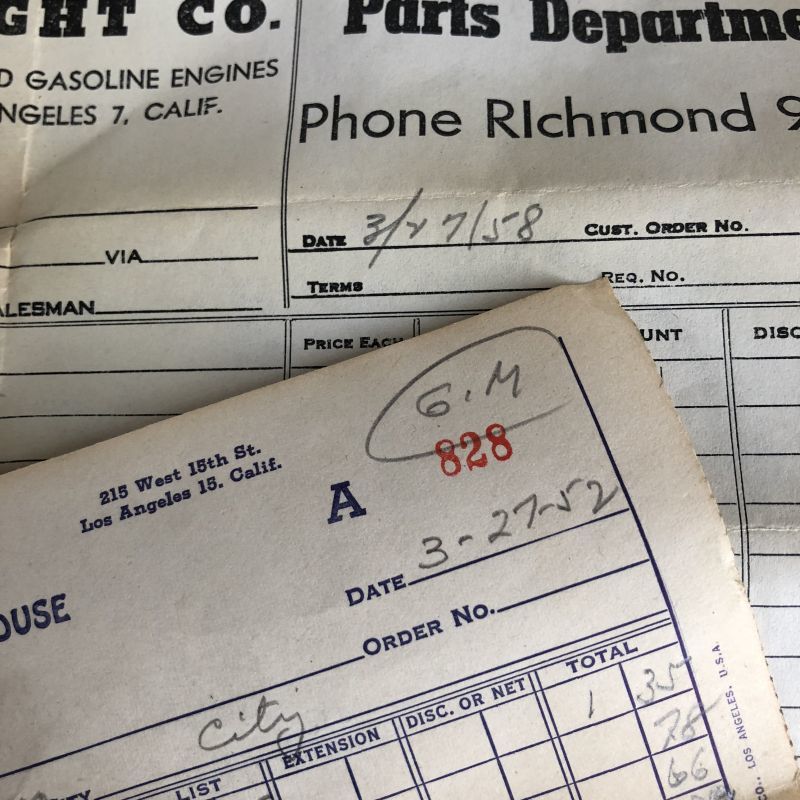 GHT CO.
Parts Departme
D GASOLINE ENGINES
NGELES 7, CALIF.
Phone RIchmond 9
VIA
DATE 3/27/58
CUST. ORDER NO.
ALESMAN
TERMS
REQ. NO.
PRICE EACH
UNT
DISC
G.M
215 West 15th St.
Los Angeles 15, Calif.
A 828
DATE 3-27-52
OUSE
ORDER NO.
City
LIST
EXTENSION
DISC. OR NET
TOTAL
1 35
78
66
CO., LOS ANGELES, U.S.A.